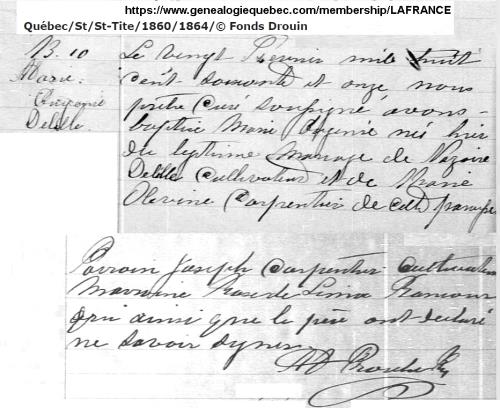 https://www.genealogiequebec.com/membership/LAFRANCE
Québec/St/St-Tite/1860/1864/© Fonds Drouin
B. 10
Marie
Delille
Le vingt Fevrier mil huit
cent soixante et onze nous
prêtre curé soussigné avons
baptisé Marie née hier
du légitime mariage de Nazaire
Delille cultivateur et de Marie
Olevine Carpentier de cette paroisse
Parrain Joseph Carpentier cultivateur
Marraine Rose de Lima
qui ainsi que le père ont déclaré
ne savoir signer